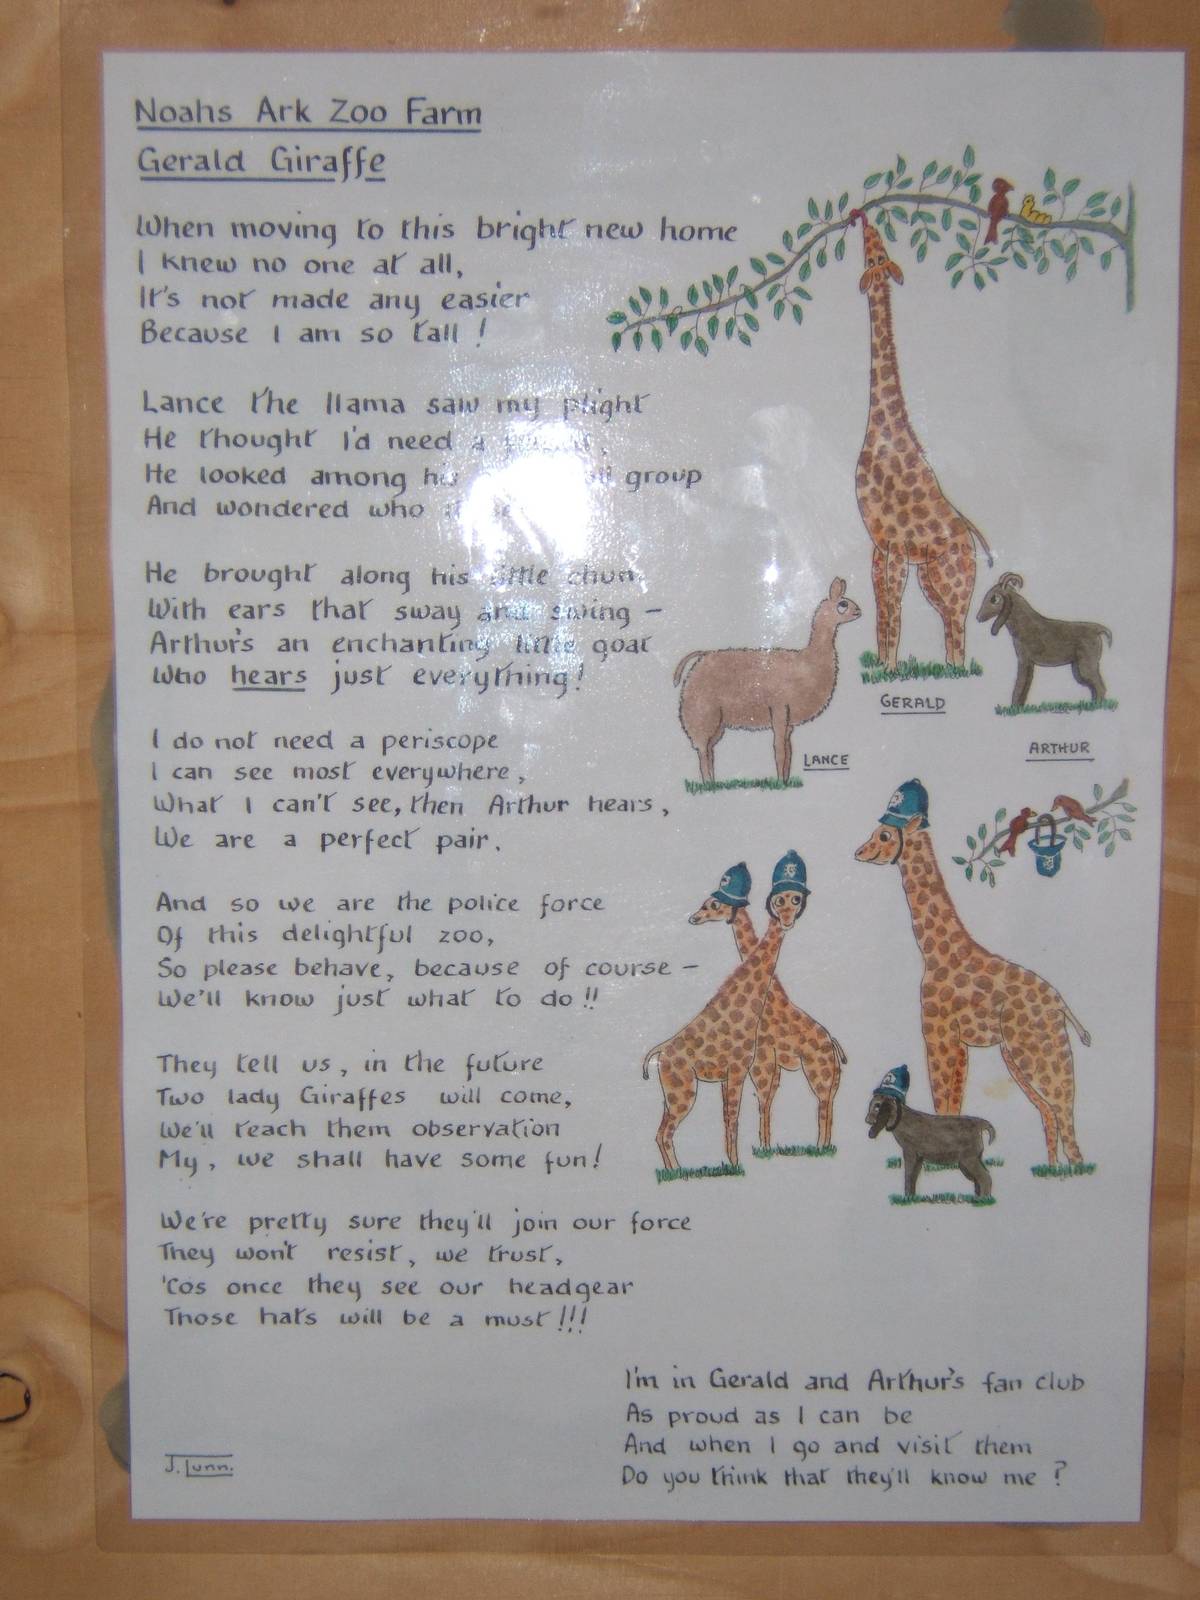 Noahs Ark Zoo Farm
Gerald Giraffe
When moving to this bright new home
I knew no one at all,
It's not made any easier
Because I am so tall !
Lance the llama saw my plight
He thought I'd need a
He looked among his group
And wondered who
He brought along his little chum
With ears that sway and swing –
Arthur's an enchanting little goat
Who hears just everything!
I do not need a periscope
I can see most everywhere,
What I can't see, then Arthur hears,
We are a perfect pair.
And so we are the police force
Of this delightful zoo,
So please behave, because of course –
We'll know just what to do !!
They tell us, in the future
Two lady Giraffes will come,
We'll teach them observation
My, we shall have some fun!
We're pretty sure they'll join our force
They won't resist, we trust,
'Cos once they see our headgear
Those hats will be a must !!!
I'm in Gerald and Arthur's fan club
As proud as I can be
And when I go and visit them
Do you think that they'll know me ?
J. Lunn.
GERALD
LANCE
ARTHUR